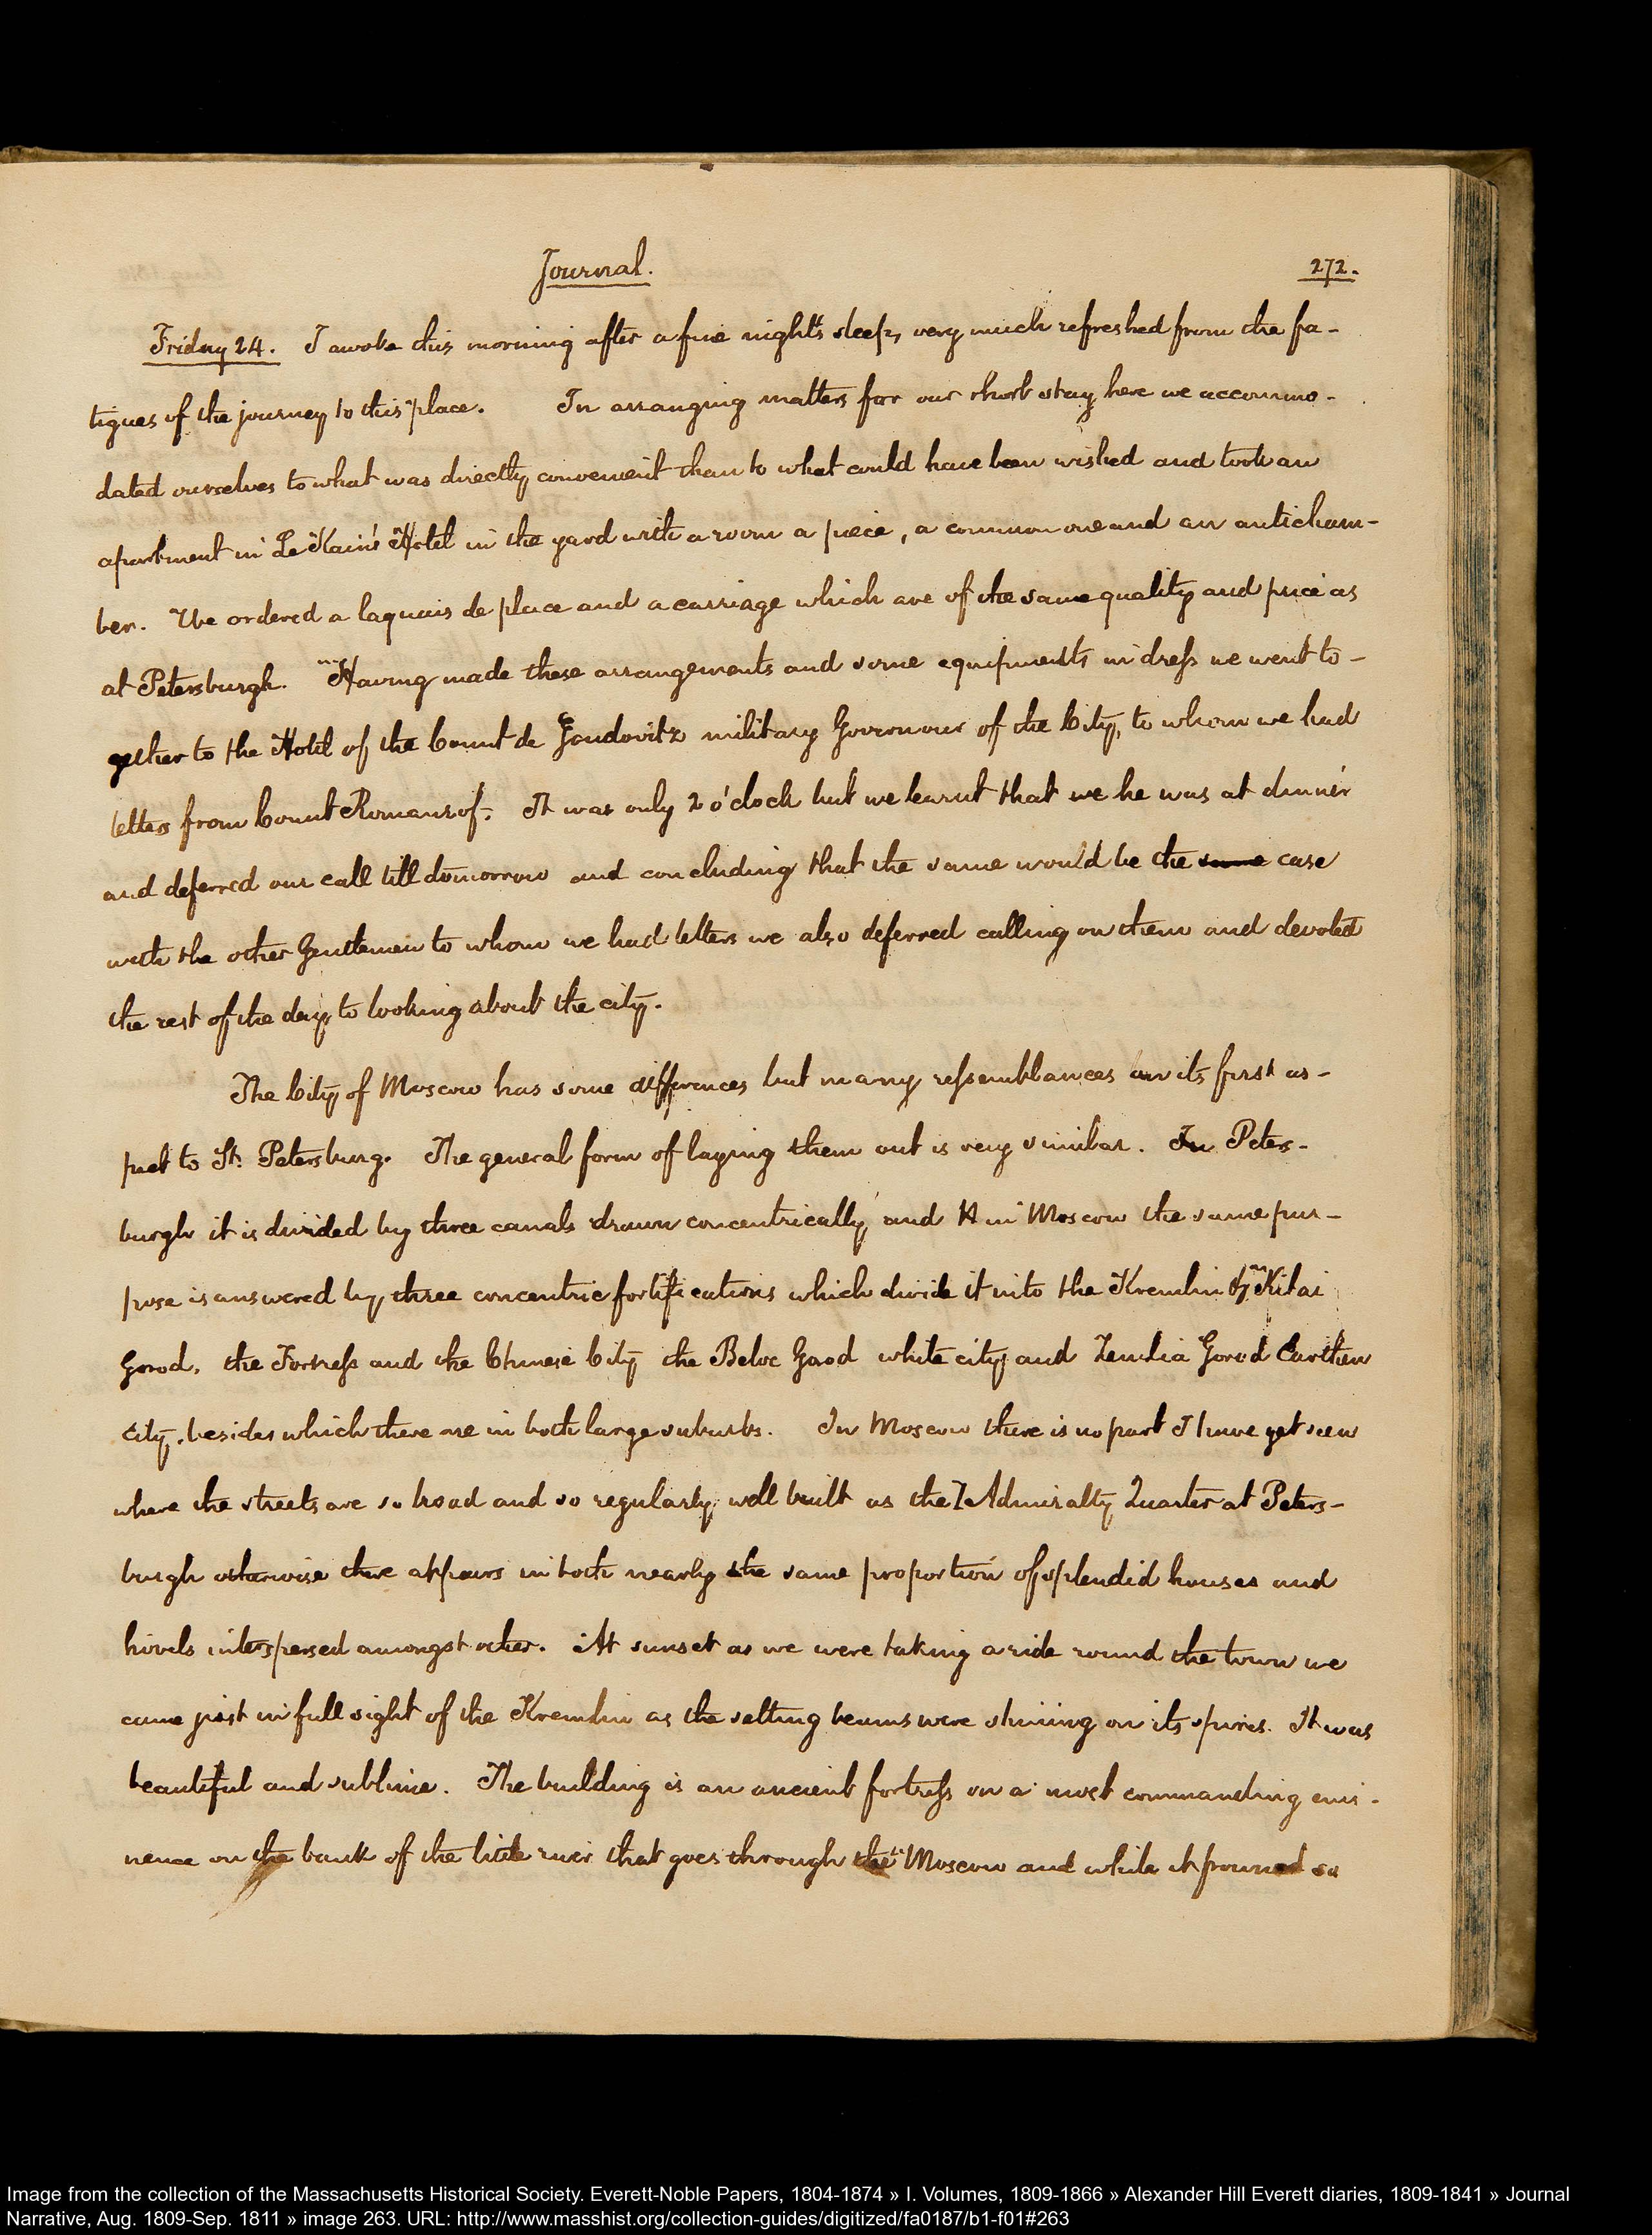 Journal.
272.
Friday 24. I awoke this morning after a fine night's sleep, very much refreshed from the fa-
tigues of the journey to this place. In arranging matters for our short stay here we accommo-
dated ourselves to what was directly convenient than to what could have been wished and took an
apartment in Le Kain's Hotel in the yard with a room a piece, a common one and an anticham-
ber. We ordered a laquais de place and a carriage which are of the same quality and price as
at Petersburgh. Having made these arrangements and some equipments in dress we went to-
gether to the Hotel of the Count de Goudovitz military Governour of the City, to whom we had
letters from Count Romanzof. It was only 2 o'clock but we learnt that we he was at dinner
and deferred our call till tomorrow and concluding that the same would be the same case
with the other Gentlemen to whom we had letters we also deferred calling on them and devoted
the rest of the day to looking about the city.
The City of Moscow has some differences but many ressemblances in its first as-
pect to St. Petersburg. The general form of laying them out is very similar. In Peters-
burgh it is divided by three canals drawn concentrically and in Moscow the same pur-
pose is answered by three concentric fortifications which divide it into the Kremlin & Kitai
Gorod, the Fortress and the Chinese City the Beloe Gorod white city and Zemlia Gorod Earthen
City, besides which there are in both large suburbs. In Moscow there is no part I have yet seen
where the streets are so broad and so regularly well built as the I Admiralty Quarter at Peters-
burgh otherwise there appears in both nearly the same proportion of splendid houses and
hovels interspersed amongst other. At sunset as we were taking a ride round the town we
came just in full sight of the Kremlin as the setting beams were shining on its spires. It was
beautiful and sublime. The building is an ancient fortress on a most commanding emi-
nence on the bank of the little river that goes through the Moscow and while it frowned so
Image from the collection of the Massachusetts Historical Society. Everett-Noble Papers, 1804-1874 » I. Volumes, 1809-1866 » Alexander Hill Everett diaries, 1809-1841 » Journal
Narrative, Aug. 1809-Sep. 1811 » image 263. URL: http://www.masshist.org/collection-guides/digitized/fa0187/b1-f01#263